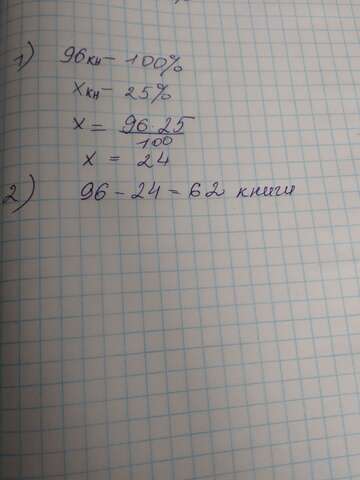 1) 96кн - 100%
xкн - 25%
x = 96·25/100
x = 24
2) 96 - 24 = 62 книги